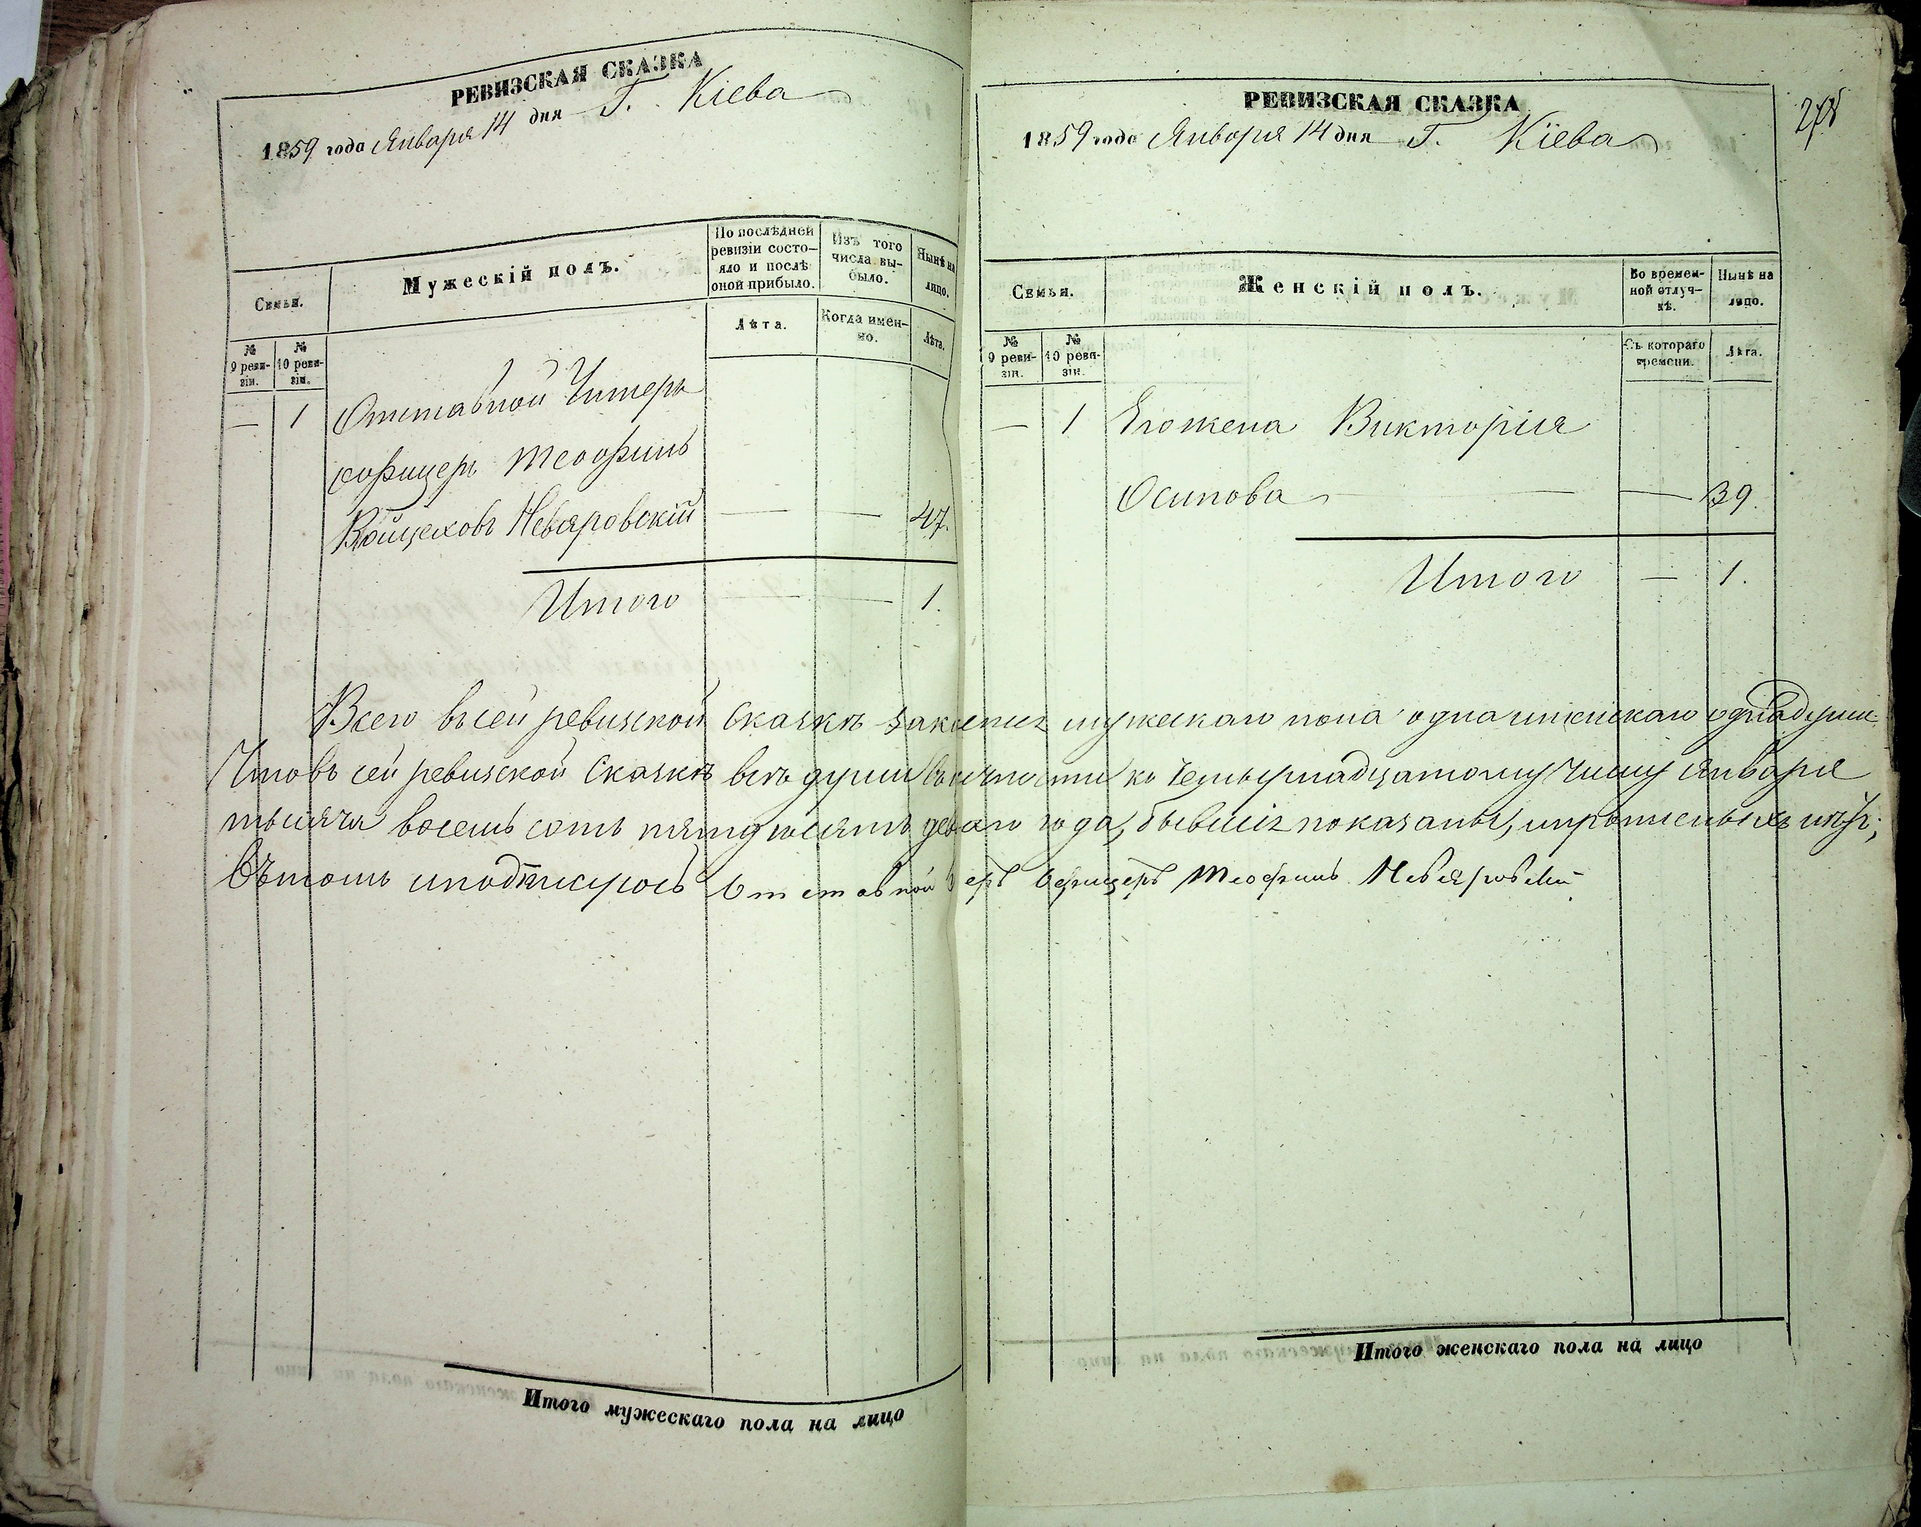 РЕВИЗСКАЯ СКАЗКА
1859 года Января 14 дня Г. Кіева
Семьи.
Мужескій полъ.
По послѣдней ревизіи состояло и послѣ оной прибыло.
Изъ того числа выбыло.
Нынѣ на лицо.
Лѣта.
Когда именно.
Лѣта.
№ 9 ревизіи.
№ 10 ревизіи.
— 1 Отставной Унтеръ
Офицеръ Теофилъ
Войцеховъ Невяровскій — — 47.
Итого — — 1.
РЕВИЗСКАЯ СКАЗКА
1859 года Января 14 дня Г. Кіева
Семьи.
Женскій полъ.
Во временной отлучкѣ.
Нынѣ на лицо.
Съ котораго времени.
Лѣта.
№ 9 ревизіи.
№ 10 ревизіи.
— 1 Его жена Викторія
Осипова — — — 39.
Итого — 1.
Всего въ сей ревизской сказкѣ мужескаго пола одна и женскаго одна душа
Что въ сей ревизской сказкѣ всѣ души въ ко четырнадцатому числу Января
тысяча восемь сотъ пятдесятъ года, бывшіе показаны, и нѣтъ;
Въ томъ и подписуюсь Отставной Офицеръ Теофилъ Невяровскій
Итого мужескаго пола на лицо
Итого женскаго пола на лицо